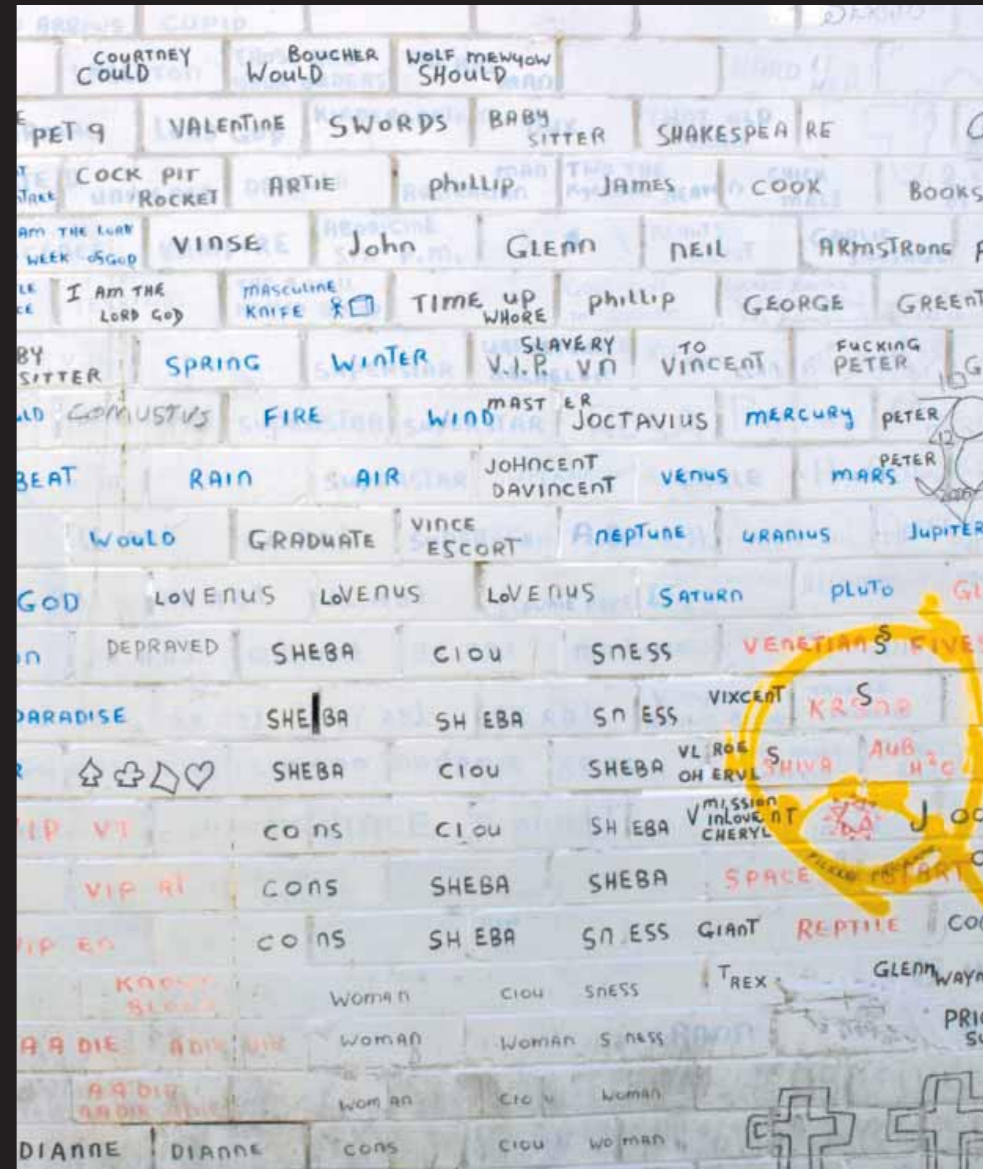 CUPID
COURTNEY BOUCHER WOLF MEWYOW
COULD WOULD SHOULD
PET 9 VALENTINE SWORDS BABY SITTER SHAKESPEA RE
COCK PIT ROCKET ARTIE phillip JAMES COOK BOOKS
AM THE LORD VINSE John GLENN NEIL ARMSTRONG
WEEK OF GOD
I AM THE LORD GOD MASCULINE KNIFE TIME UP WHORE phillip GEORGE GREENT
BY SITTER SPRING WINTER SLAVERY V.I.P. VN TO VINCENT FUCKING PETER
COMUSTVS FIRE WIND MAST ER JOCTAVIUS MERCURY PETER
12
BEAT RAIN AIR JOHNCENT DAVINCENT VENUS MARS PETER
WOULD GRADUATE VINCE ESCORT NEPTUNE URANIUS JUPITER
GOD LOVENUS LOVENUS LOVENUS SATURN PLUTO GL
ON DEPRAVED SHEBA CIOU SNESS VENETIAN S FIVES
PARADISE SHE BA SH EBA SN ESS VIXCENT S
SHEBA CIOU SHEBA VL ROE S SHIVA AUB
OH ERVL H²O
VIP VT CONS CIOU SH EBA MISSION V INLOVE NT CHERYL J OC
VIP AT CONS SHEBA SHEBA SPACE START
VIP EN CO NS SH EBA SN ESS GIANT REPTILE COO
KNOWN BLOOD WOMAN CIOU SNESS T REX GLENN WAYN
A A DIE ADIE WOMAN WOMAN S NESS PRIC
AADIE WOM AN CIO U WOMAN
DIANNE DIANNE CONS CIOU WO MAN